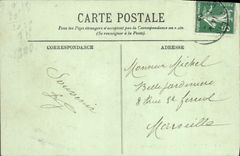 CARTE POSTALE
Tous les Pays étrangers n'acceptent pas la Correspondance au Recto
(Se renseigner à la Poste).
CORRESPONDANCE
ADRESSE
Souvenir
Monsieur Michel
Belle Jardinière
8 Rue St Ferreol
Marseille